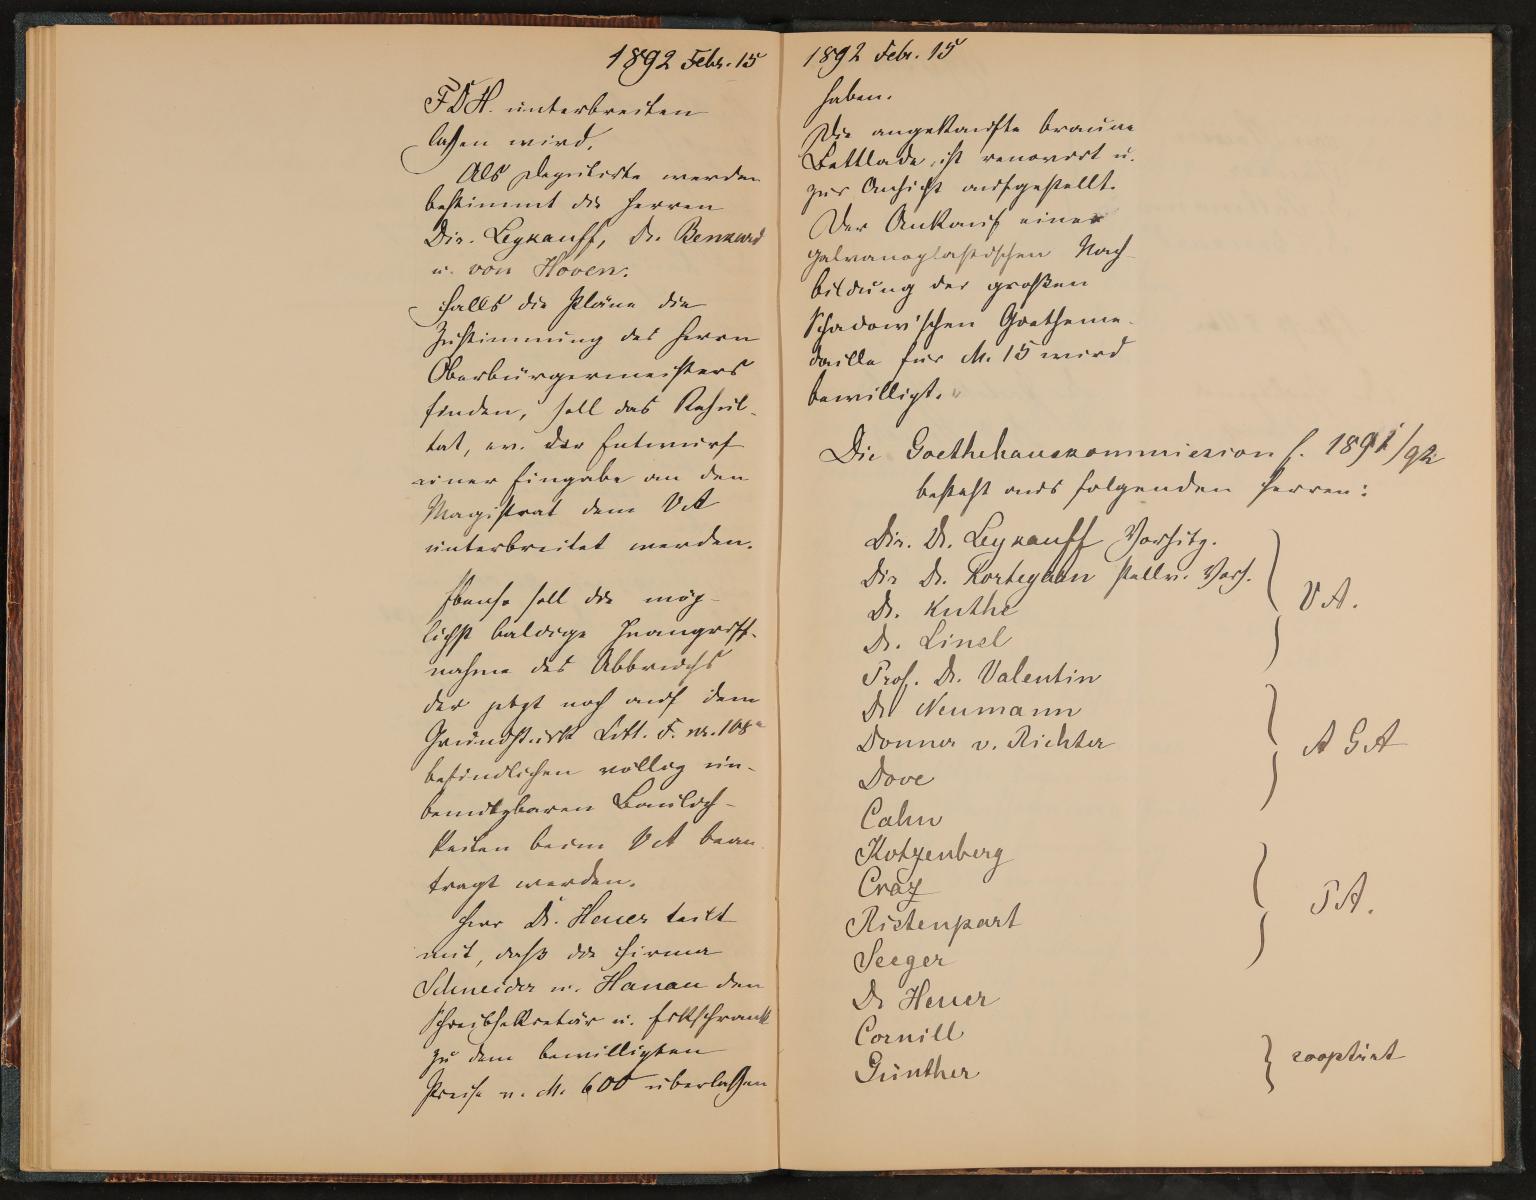 1892 Febr. 15
FDH. unterbreiten
lassen wird.
Als Deputirte werden
bestimmt die Herren
Dir. Leykauff, Dr. Benkard
u. von Hoven.
Falls die Pläne die
Zustimmung des Herrn
Oberbürgermeisters
finden, soll das Resul-
tat, ev. der Entwurf
einer Eingabe an den
Magistrat dem VA
unterbreitet werden.
Ebenso soll die mög-
lichst baldige Inangriff-
nahme des Abbruchs
der jetzt noch auf dem
Grundstück Litt. F. nr. 108a
befindlichen völlig un-
benutzbaren Baulich-
keiten beim VA bean
tragt werden.
Herr Dr. Heuer teilt
mit, daß die Firma
Schneider u. Hanau den
Schreibsekretär u. Eckschrank
zu dem bewilligten
Preise v. M. 600 überlassen
1892 Febr. 15
haben.
Die angekaufte braune
Bettlade ist renovirt u.
zur Ansicht aufgestellt.
Der Ankauf einer
galvanoplastischen Nach-
bildung der großen
Schadow'schen Goetheme-
daille für M. 15 wird
bewilligt.
Die Goethehauskommission f. 1891/92
besteht aus folgenden Herren:
Dir. Dr. Leykauff Vorsitz.
Dir Dr. Kortegarn stellv. Vors.
Dr. Knthe
Dr. Linel
VA.
Prof. Dr. Valentin
Dr Neumann
Donner v. Richter
Dove
AGA
Cahn
Kotzenberg
Craz
Ristenpart
Seeger
PA.
Dr Heuer
Cornill
Günther
cooptirt